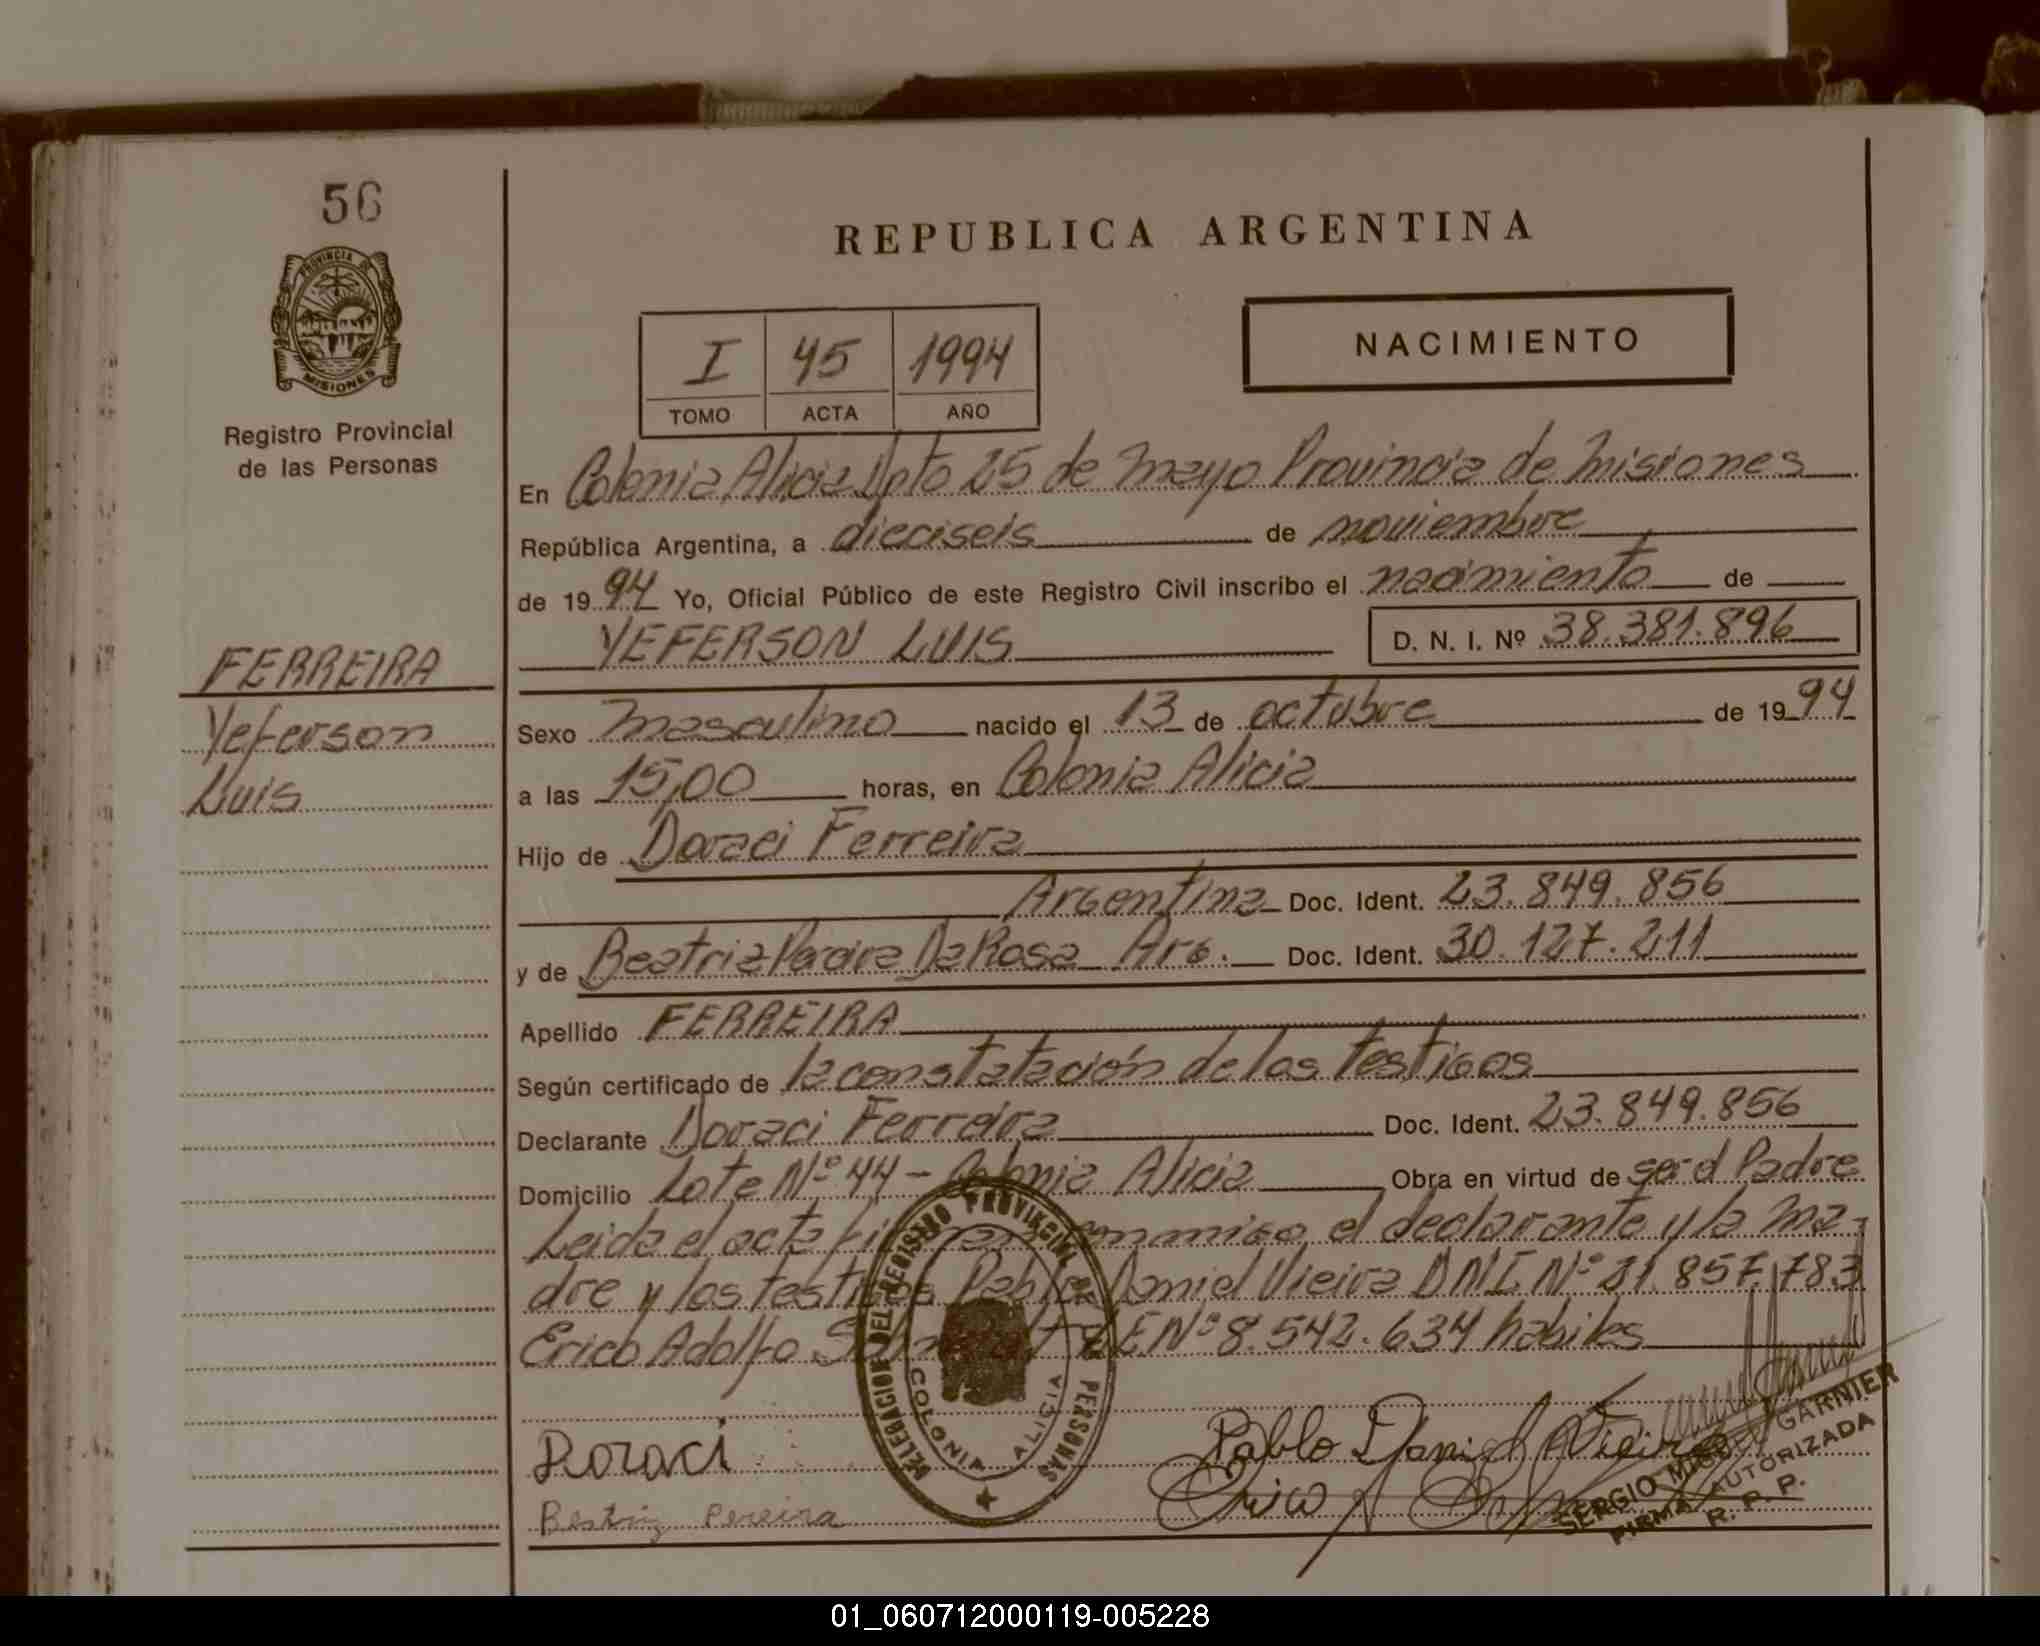 56
PROVINCIA DE
MISIONES
Registro Provincial
de las Personas
FERREIRA
Yeferson
Luis
REPUBLICA ARGENTINA
I 45 1994
TOMO ACTA AÑO
NACIMIENTO
En Colonia Alicia Dpto 25 de Mayo Provincia de Misiones
República Argentina, a dieciseis de noviembre
de 1994 Yo, Oficial Público de este Registro Civil inscribo el nacimiento de
YEFERSON LUIS D. N. I. Nº 38.381.896
Sexo masculino nacido el 13 de octubre de 1994
a las 15,00 horas, en Colonia Alicia
Hijo de Doraci Ferreira
Argentina Doc. Ident. 23.849.856
y de Beatriz Pereira Da Rosa Arg. Doc. Ident. 30.127.211
Apellido FERREIRA
Según certificado de la constatación de los testigos
Declarante Doraci Ferreira Doc. Ident. 23.849.856
Domicilio Lote Nº 44 - Colonia Alicia Obra en virtud de ser el Padre
Leida el acta conmigo el declarante y la ma-
dre y los testigos Pablo Daniel Vieira DNI Nº 21.857.783
Erico Adolfo Nº 8.542.634 habiles
DELEGACION DEL REGISTRO PROVINCIAL DE PERSONAS
COLONIA ALICIA
Doraci
Beatriz Pereira
Pablo Daniel Vieira
Erico A
SERGIO MIGUEL GARNIER
FIRMA AUTORIZADA
R. P. P.
01_060712000119-005228